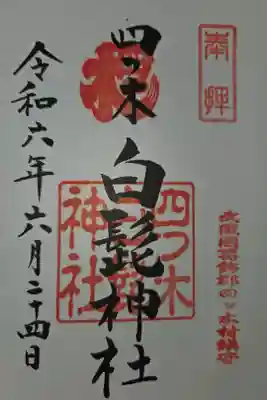 奉拝
武蔵国葛飾郡四ツ木村鎮守
四つ木
白髭神社
四つ木
白髭
神社
令和六年六月二十四日